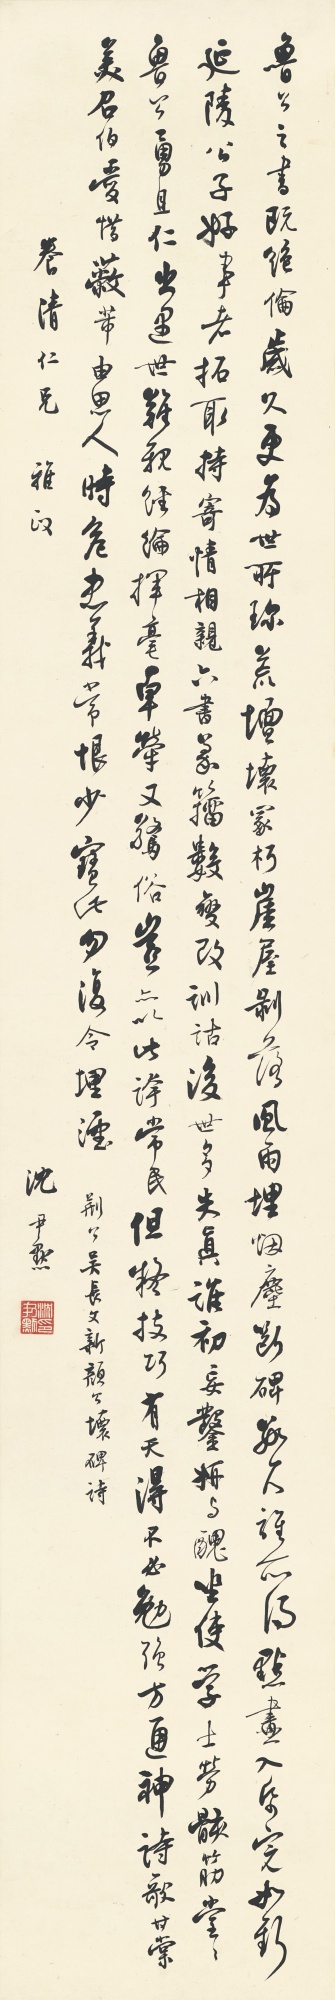 魯公之書既絕倫歲久更為世所珍荒壇壞冢朽崖屋剝落風雨埋烟塵斷碑數尺誰所得點畫入紙完如新
延陵公子好事者拓取持寄情相親六書篆籀數變改訓詁後世多失真誰初妄鑿妍与醜坐使学士勞骸筋堂々
魯公勇且仁出遇世難親經綸揮毫卓犖又驚俗豈亦以此誇常民但疑技巧有天得不必勉強方通神詩歌甘棠
美召伯愛惜蔽芾由思人時危忠義常恨少寶此勿復令埋堙
荊公吳長文新顏公壞碑詩
養清仁兄 雅政
沈尹默